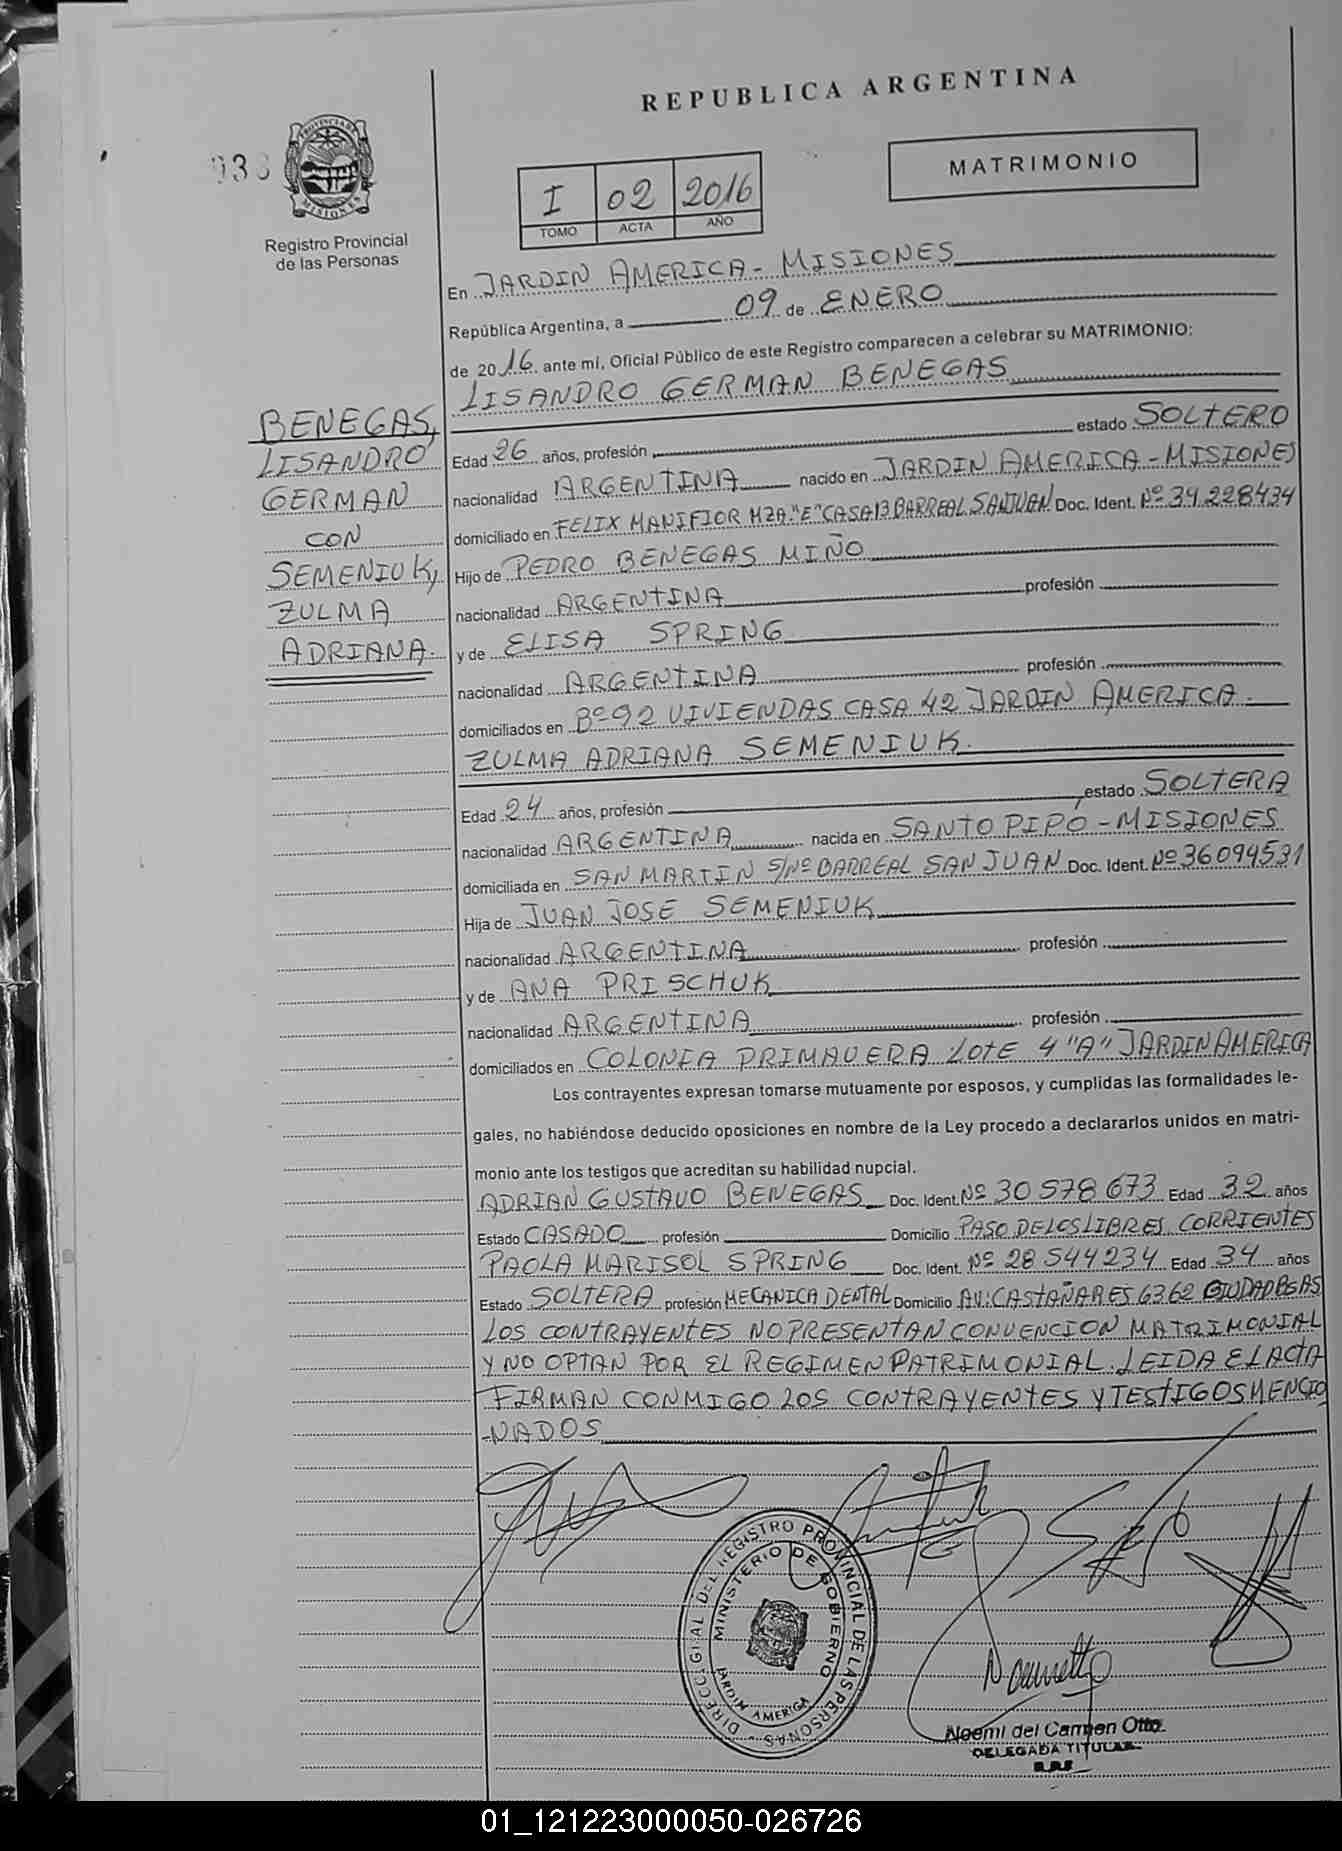 REPUBLICA ARGENTINA
MATRIMONIO
I 02 2016
TOMO ACTA AÑO
PROVINCIA DE MISIONES
Registro Provincial
de las Personas
BENEGAS,
LISANDRO
GERMAN
CON
SEMENIUK,
ZULMA
ADRIANA.
En JARDIN AMERICA - MISIONES
República Argentina, a 09 de ENERO
de 2016 ante mí, Oficial Público de este Registro comparecen a celebrar su MATRIMONIO:
LISANDRO GERMAN BENEGAS
Edad 26 años, profesión estado SOLTERO
nacionalidad ARGENTINA nacido en JARDIN AMERICA - MISIONES
domiciliado en FELIX MANIFIOR MZA."E" CASA 13 BARREAL SAN JUAN Doc. Ident. Nº 34.228434
Hijo de PEDRO BENEGAS MIÑO
nacionalidad ARGENTINA profesión
y de ELISA SPRING
nacionalidad ARGENTINA profesión
domiciliados en Bº 92 VIVIENDAS CASA 42 JARDIN AMERICA.
ZULMA ADRIANA SEMENIUK.
Edad 24 años, profesión estado SOLTERA
nacionalidad ARGENTINA nacida en SANTO PIPÓ - MISIONES
domiciliada en SAN MARTIN S/Nº BARREAL SAN JUAN Doc. Ident. Nº 36094531
Hija de JUAN JOSE SEMENIUK
nacionalidad ARGENTINA profesión
y de ANA PRISCHUK
nacionalidad ARGENTINA profesión
domiciliados en COLONIA PRIMAVERA LOTE 4 "A" JARDIN AMERICA
Los contrayentes expresan tomarse mutuamente por esposos, y cumplidas las formalidades le-
gales, no habiéndose deducido oposiciones en nombre de la Ley procedo a declararlos unidos en matri-
monio ante los testigos que acreditan su habilidad nupcial.
ADRIAN GUSTAVO BENEGAS Doc. Ident. Nº 30578673 Edad 32 años
Estado CASADO profesión Domicilio PASO DE LOS LIBRES. CORRIENTES
PAOLA MARISOL SPRING Doc. Ident. Nº 28544234 Edad 34 años
Estado SOLTERA profesión MECANICA DENTAL Domicilio AV: CASTAÑARES 6362 CIUDAD BS AS
LOS CONTRAYENTES NO PRESENTAN CONVENCION MATRIMONIAL
Y NO OPTAN POR EL REGIMEN PATRIMONIAL. LEIDA EL ACTA
FIRMAN CONMIGO LOS CONTRAYENTES Y TESTIGOS MENCIO
-NADOS
DIRECC. GRAL DEL REGISTRO PROVINCIAL DE LAS PERSONAS
MINISTERIO DE GOBIERNO
JARDIN AMERICA
Noemi del Carmen Otto
DELEGADA TITULAR
01_121223000050-026726